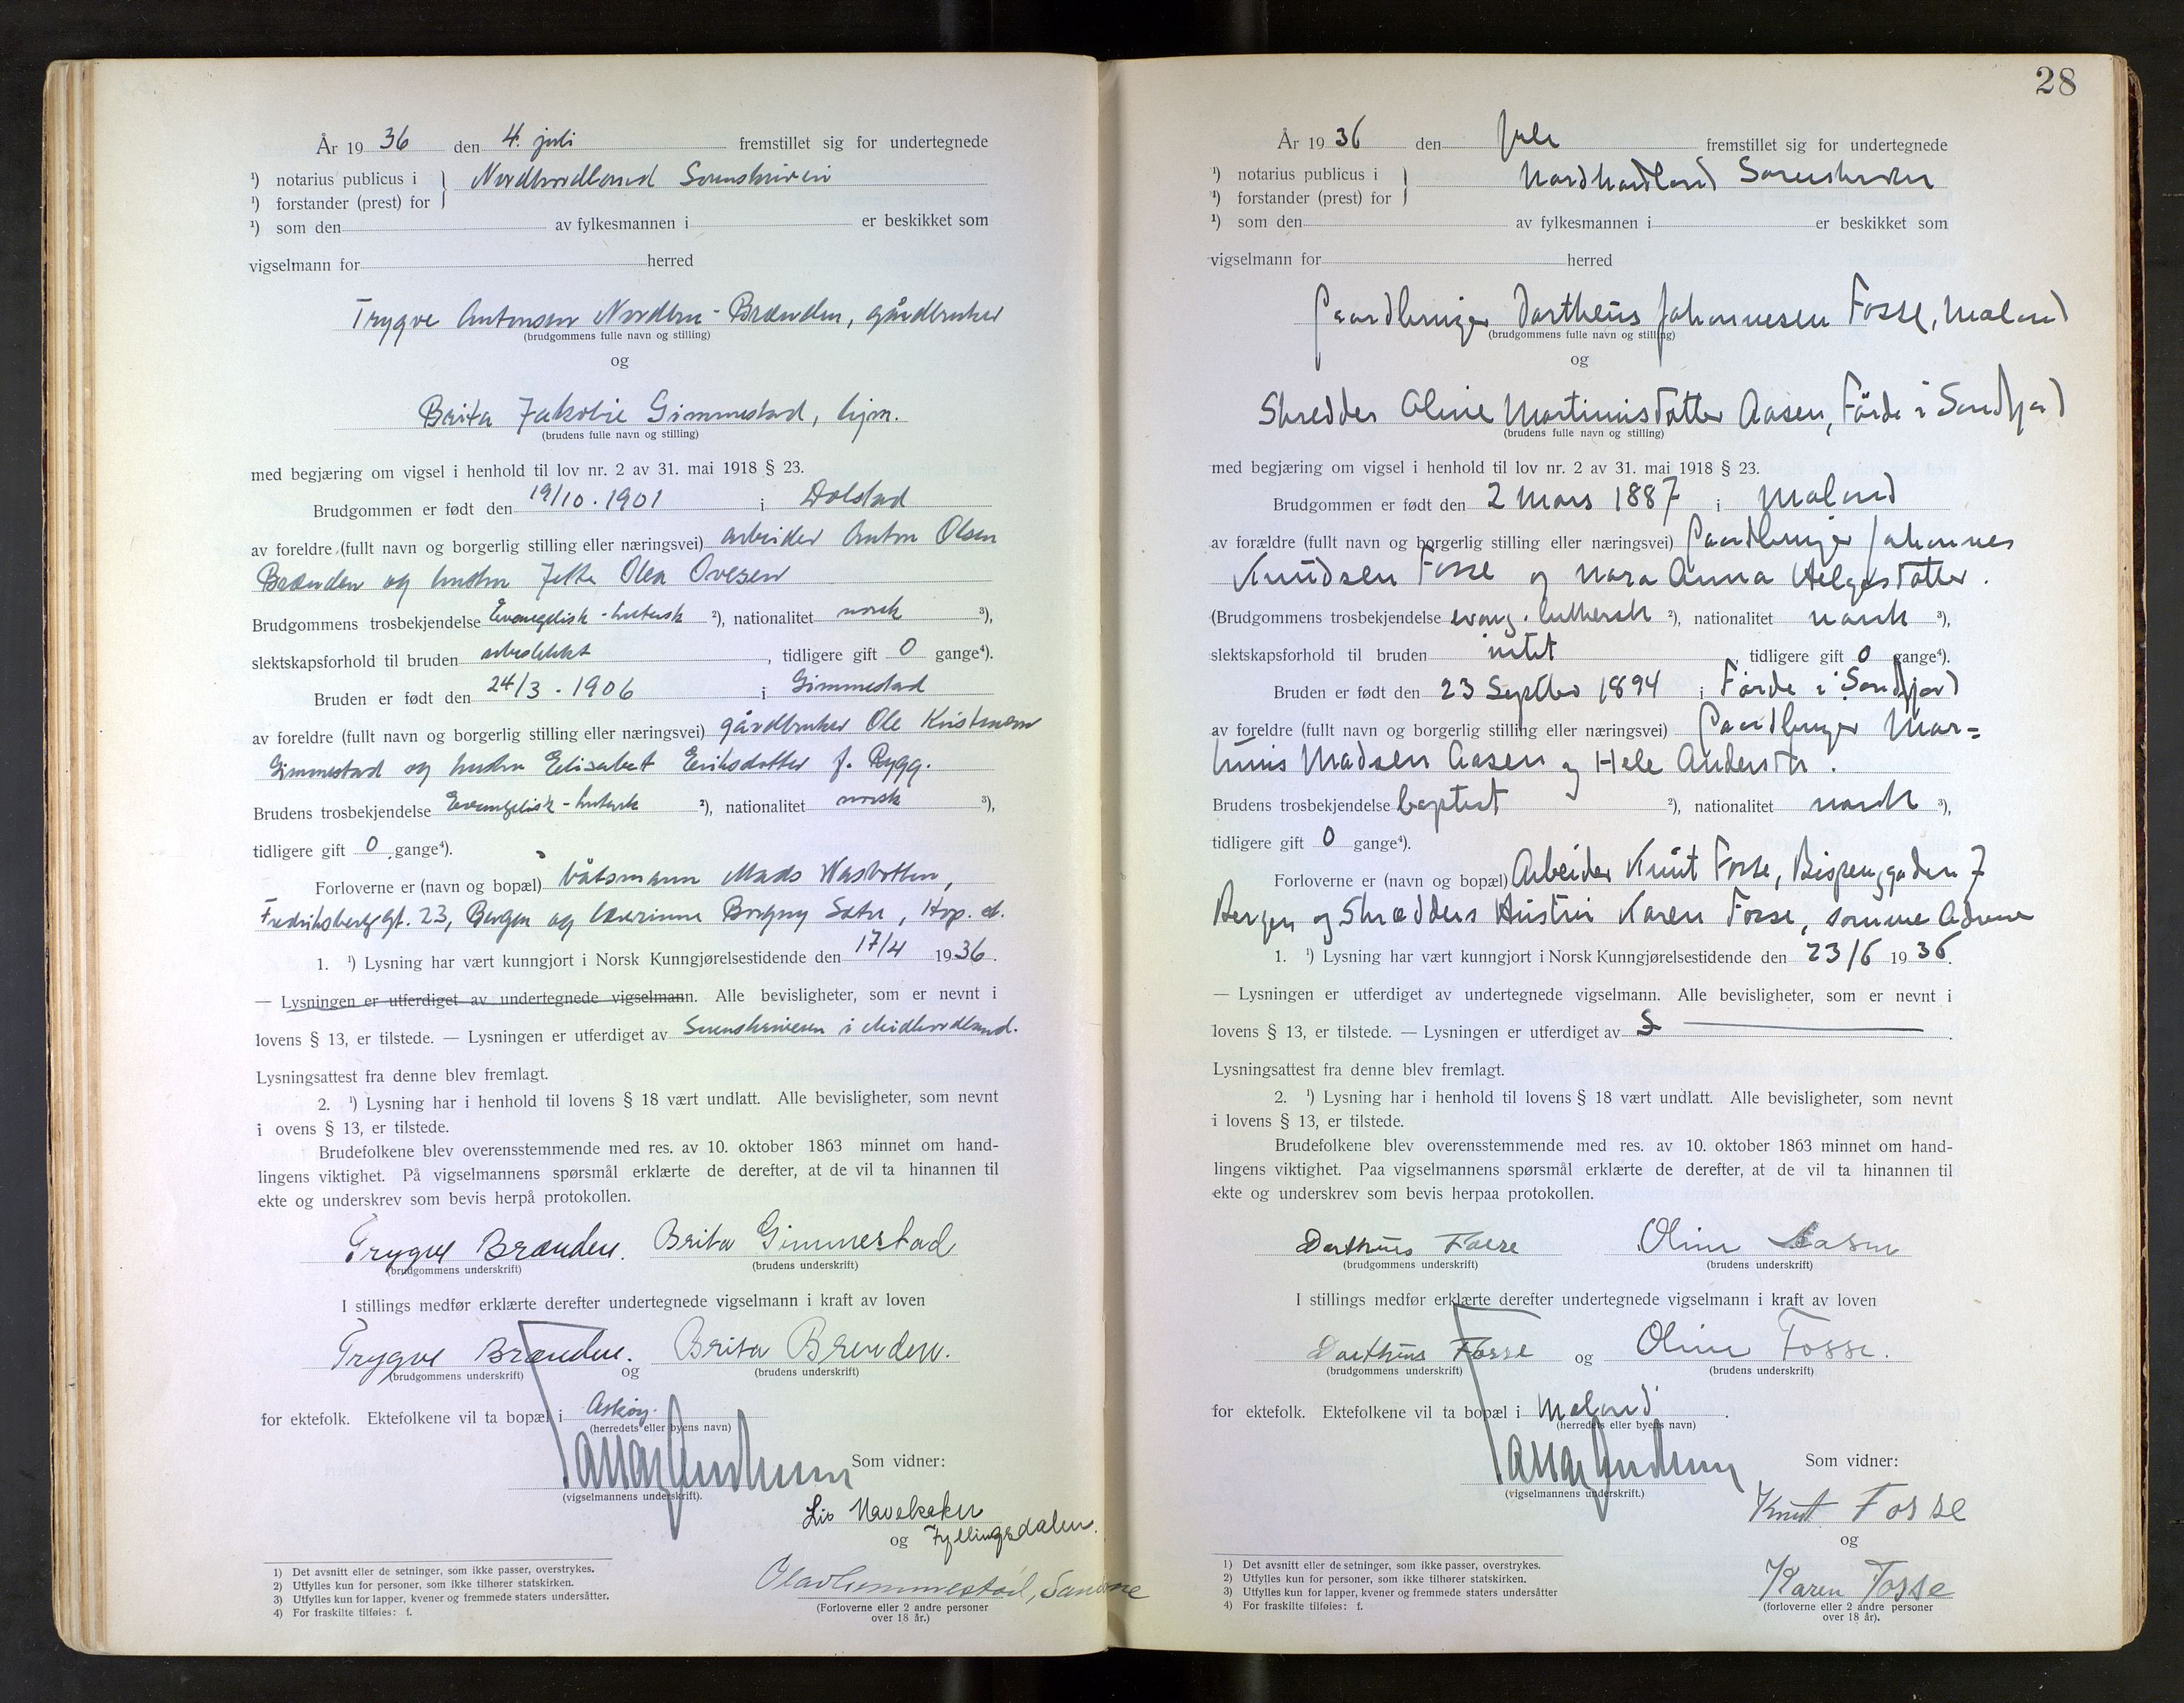 År 1936 den 4. juli fremstillet sig for undertegnede
¹) notarius publicus i } Nordhordland Sorenskriveri
¹) forstander (prest) for
¹) som den av fylkesmannen i er beskikket som
vigselmann for herred
Trygve Antonsen Nordbru-Brænden, gårdbruker
(brudgommens fulle navn og stilling)
og
Brita Jakobie Gimmestad, hjm.
(brudens fulle navn og stilling)
med begjæring om vigsel i henhold til lov nr. 2 av 31. mai 1918 § 23.
Brudgommen er født den 19/10 . 1901 i Dolstad
av foreldre (fullt navn og borgerlig stilling eller næringsvei) arbeider Anton Olsen
Brænden og hustru Jette Olea Ovesen
Brudgommens trosbekjendelse Evangelisk-lutersk ²), nationalitet norsk ³),
slektskapsforhold til bruden ubeslektet , tidligere gift 0 gange⁴).
Bruden er født den 24/3 - 1906 i Gimmestad
av foreldre (fullt navn og borgerlig stilling eller næringsvei) gårdbruker Ole Kristensen
Gimmestad og hustru Elisabet Eriksdotter f. Rygg.
Brudens trosbekjendelse Evangelisk-lutersk ²), nationalitet norsk ³),
tidligere gift 0 gange⁴).
Forloverne er (navn og bopæl) båtsmann Mads Wasbotten,
Fredriksberggt. 23, Bergen og lærerinne Borgny Sætre, Hop. st.
1. ¹) Lysning har vært kunngjort i Norsk Kunngjørelsestidende den 17/4 1936.
— Lysningen er utferdiget av undertegnede vigselmann. Alle bevisligheter, som er nevnt i
lovens § 13, er tilstede. — Lysningen er utferdiget av Sorenskriveren i Midhordland.
Lysningsattest fra denne blev fremlagt.
2. ¹) Lysning har i henhold til lovens § 18 vært undlatt. Alle bevisligheter, som nevnt
i ovens § 13, er tilstede.
Brudefolkene blev overensstemmende med res. av 10. oktober 1863 minnet om hand-
lingens viktighet. På vigselmannens spørsmål erklærte de derefter, at de vil ta hinannen til
ekte og underskrev som bevis herpå protokollen.
Trygve Brænden. Brita Gimmestad
(brudgommens underskrift) (brudens underskrift)
I stillings medfør erklærte derefter undertegnede vigselmann i kraft av loven
Trygve Brænden. og Brita Brenden.
(brudgommens underskrift) (brudens underskrift)
for ektefolk. Ektefolkene vil ta bopæl i Askøy.
(herredets eller byens navn)
Som vidner:
(vigselmannens underskrift).
Liv Mavelsaker
og Fyllingsdalen.
Olav Gimmestad, Sandane
(Forloverne eller 2 andre personer
over 18 år.)
1) Det avsnitt eller de setninger, som ikke passer, overstrykes.
2) Utfylles kun for personer, som ikke tilhører statskirken.
3) Utfylles kun for lapper, kvener og fremmede staters undersåtter.
4) For fraskilte tilføies: f.
28
År 1936 den juli fremstillet sig for undertegnede
¹) notarius publicus i } Nordhordland Sorenskriveri
¹) forstander (prest) for
¹) som den av fylkesmannen i er beskikket som
vigselmann for herred
Gaardbruger Dortheus Johannesen Fosse, Meland
(brudgommens fulle navn og stilling)
og
Skredder Oline Martinusdatter Aasen, Førde i Søndfjord
(brudens fulle navn og stilling)
med begjæring om vigsel i henhold til lov nr. 2 av 31. mai 1918 § 23.
Brudgommen er født den 2 Mars 1887 i Meland
av forældre (fullt navn og borgerlig stilling eller næringsvei) Gaardbruger Johannes
Knudsen Fosse og Anna Helgesdatter.
(Brudgommens trosbekjendelse evang. luthersk ²), nationalitet norsk ³),
slektskapsforhold til bruden intet , tidligere gift 0 gange⁴).
Bruden er født den 23 Septber 1894 i Førde i Søndfjord
av foreldre (fullt navn og borgerlig stilling eller næringsvei) Gaardbruger Mar=
tinus Madsen Aasen og Hele Andersdtr.
Brudens trosbekjendelse baptist ²), nationalitet norsk ³),
tidligere gift 0 gange⁴).
Forloverne er (navn og bopæl) Arbeider Knut Fosse, Bispengsgaden 7
Bergen og Skrædders Hustru Karen Fosse, samme Adresse
1. ¹) Lysning har vært kunngjort i Norsk Kunngjørelsestidende den 23/6 1936.
— Lysningen er utferdiget av undertegnede vigselmann. Alle bevisligheter, som er nevnt i
lovens § 13, er tilstede. — Lysningen er utferdiget av S
Lysningsattest fra denne blev fremlagt.
2. ¹) Lysning har i henhold til lovens § 18 vært undlatt. Alle bevisligheter, som nevnt
i lovens § 13, er tilstede.
Brudefolkene blev overensstemmende med res. av 10. oktober 1863 minnet om hand-
lingens viktighet. Paa vigselmannens spørsmål erklærte de derefter, at de vil ta hinannen til
ekte og underskrev som bevis herpaa protokollen.
Dortheus Fosse Oline Aasen
(brudgommens underskrift) (brudens underskrift)
I stillings medfør erklærte derefter undertegnede vigselmann i kraft av loven
Dortheus Fosse og Oline Fosse.
(brudgommens underskrift) (brudens underskrift)
for ektefolk. Ektefolkene vil ta bopæl i Meland.
(herredets eller byens navn)
Som vidner:
(vigselmannens underskrift.)
Knut Fosse
og
Karen Fosse
(forloverne eller 2 andre personer
over 18 år).
1) Det avsnitt eller de setninger, som ikke passer, overstrykes.
2) Utfylles kun for personer, som ikke tilhører statskirken.
3) Utfylles kun for lapper, kvener og fremmede staters undersåtter
4) For fraskilte tilføies: f.